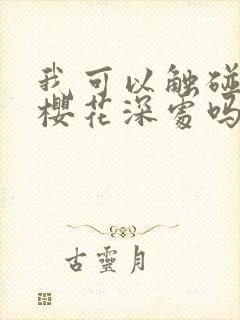 我可以触碰
樱花深处吗
古靈月